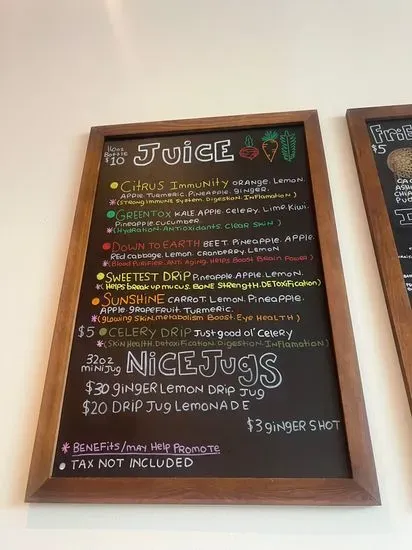 16oz
Bottle
$10
JUICE
Citrus Immunity ORANGE. Lemon.
Apple. Turmeric. Pineapple. ginger.
*(Strong immune System. Digestion. Inflamation)
GREENTOX KALE Apple. Celery. Lime. Kiwi.
Pineapple. cucumber.
*(Hydration. Antioxidants. Clear Skin)
DOWN TO EARTH BEET. Pineapple. Apple.
Red cabbage. Lemon. Cranberry. Lemon
*(Blood Purifier. Anti Aging. Helps Boost Brain Power)
SWEETEST DRIP Pineapple. Apple. Lemon.
*(Helps break up mucus. BONE Strength. DETOxification)
SUNSHINE CARROT. Lemon. Pineapple.
Apple. grapefruit. Turmeric.
*(glowing Skin. metabolism Boost. Eye HEALTH)
$5 CELERY DRIP Just good ol' Celery
*(Skin Health. Detoxification. Digestion. Inflamation)
32oz
miniJug
NICEJUGS
$30 ginger Lemon Drip Jug
$20 DRIP Jug LEMONADE
$3 ginger SHOT
* BENEFITS/may Help Promote
• TAX NOT INCLUDED
FRIE
$5
CA
ASH
CHIP
PUM